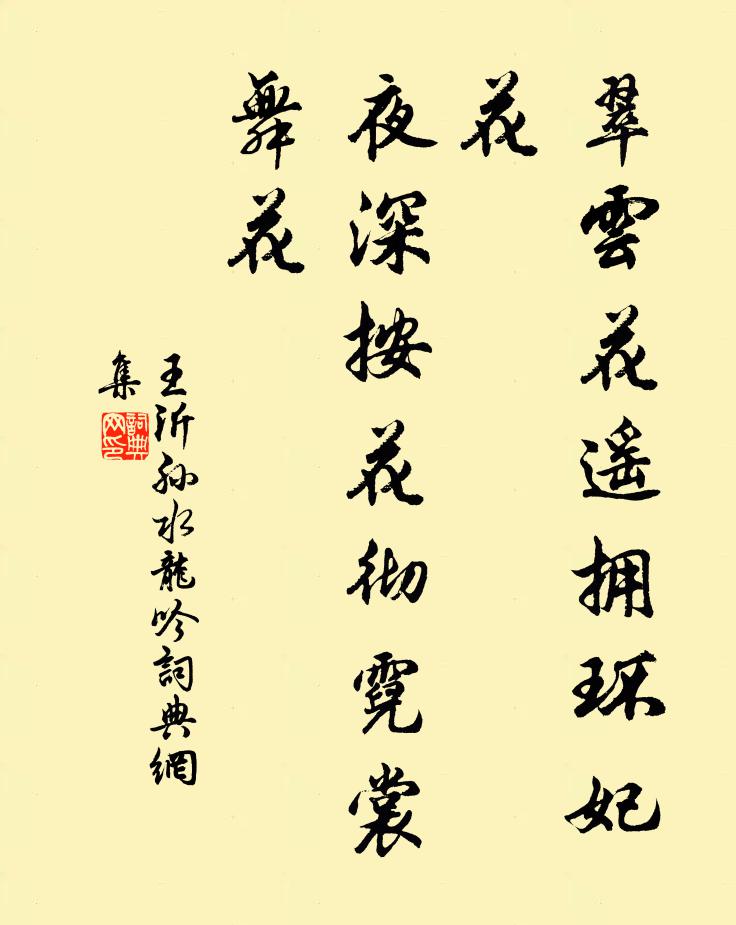 翠雲花遥拥环妃
花
夜深按花彻霓裳
舞花
王沂孙水龍吟詞典網
集
詞典
网印